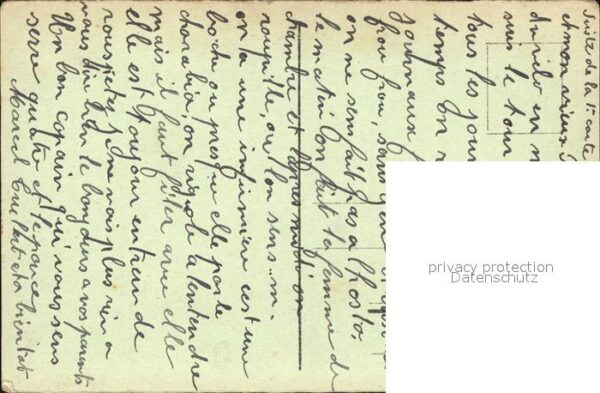 Suite de la 1re carte
et mon vieux
du vélo en
suis le tour
tous les jour
temps on
journaux
frou frou, sans gene
on ne s'en fait pas a l'hosto,
le matin on fait la femme de
chambre et l'apres midi on
roupille, ou l'on sens
on a une infirmière cest une
boche ou presqu elle parle
charabia, on rigole a l'entendre
mais il faut filer avec elle
elle est toujour entrain de
rouspeter. Je ne vois plus rien a
vous dire bien le bonjour a vos parents
Un bon copain qui vous
serre quatre et le pouce
Marcel et a bientot
privacy protection
Datenschutz